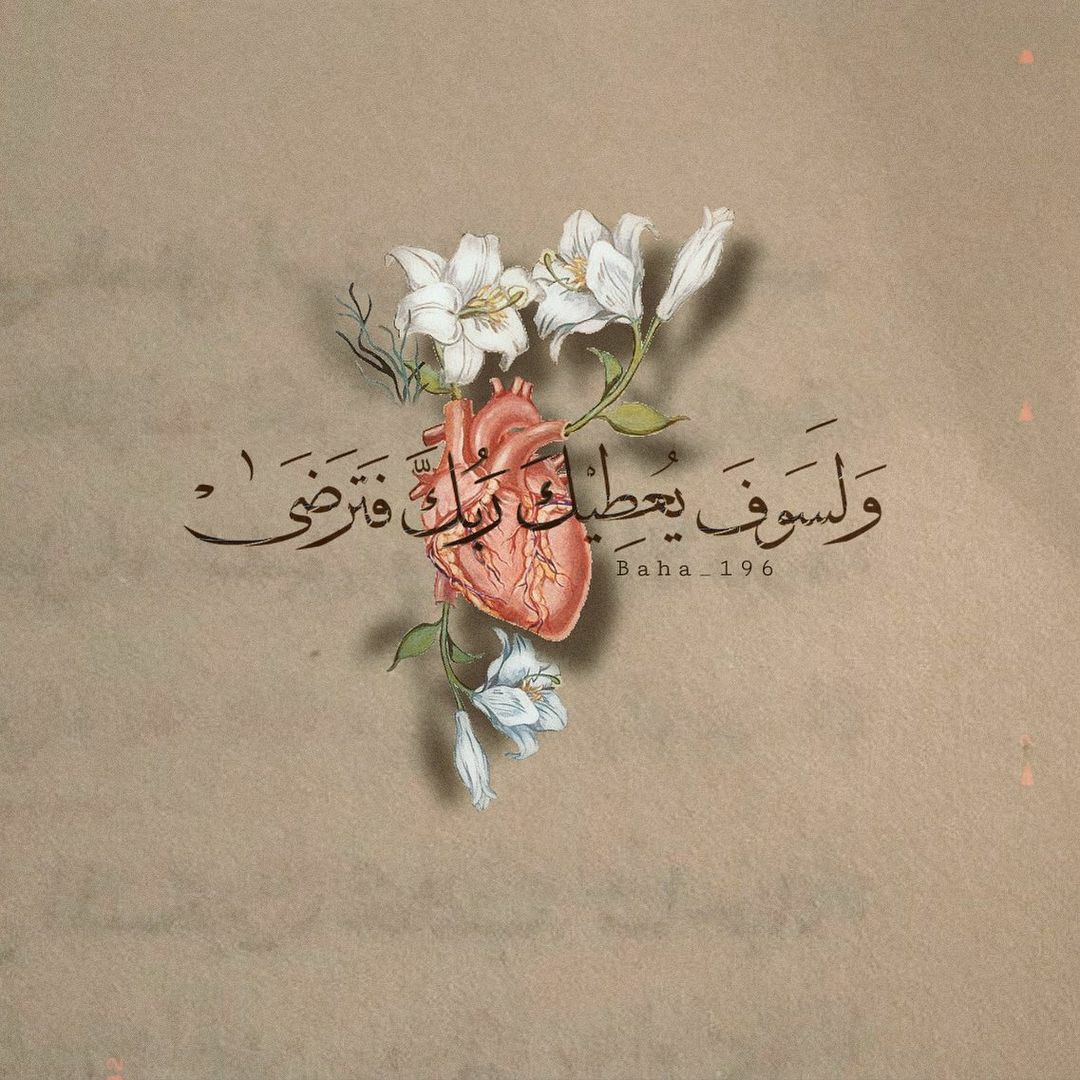 وَلَسَوَفَ يُعَطِيْكَ رَبُكَّ فَتَرَضَىٰ
Baha_196